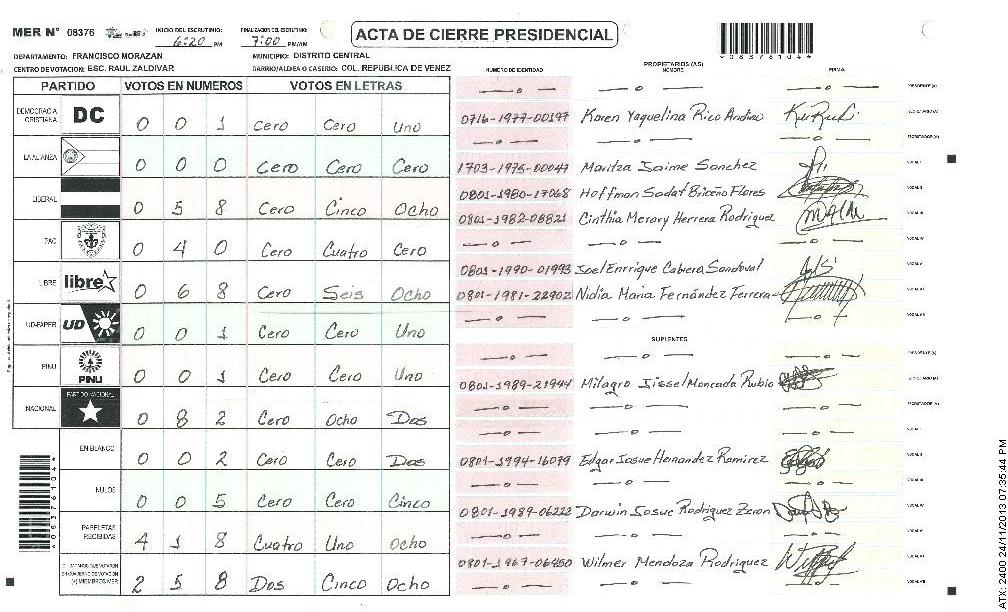 MER N° 08376
INICIO DEL ESCRUTINIO: 6:20 PM
FINALIZACION DEL ESCRUTINIO: 7:00 PM/AM
ACTA DE CIERRE PRESIDENCIAL
*08376104*
DEPARTAMENTO: FRANCISCO MORAZAN
MUNICIPIO: DISTRITO CENTRAL
CENTRO DE VOTACION: ESC. RAUL ZALDIVAR
BARRIO/ALDEA O CASERIO: COL. REPUBLICA DE VENEZ
PARTIDO VOTOS EN NUMEROS VOTOS EN LETRAS
DEMOCRACIA CRISTIANA DC 0 0 1 Cero Cero Uno
LA ALIANZA 0 0 0 Cero Cero Cero
LIBERAL 0 5 8 Cero Cinco Ocho
PAC 0 4 0 Cero Cuatro Cero
LIBRE libre 0 6 8 Cero Seis Ocho
UD-FAPER UD 0 0 1 Cero Cero Uno
PINU PINU 0 0 1 Cero Cero Uno
NACIONAL PARTIDO NACIONAL 0 8 2 Cero Ocho Dos
EN BLANCO 0 0 2 Cero Cero Dos
NULOS 0 0 5 Cero Cero Cinco
PAPELETAS RECIBIDAS 4 1 8 Cuatro Uno Ocho
(+) MIEMBROS MER 2 5 8 Dos Cinco Ocho
*08376104*
PROPIETARIOS (AS)
NUMERO DE IDENTIDAD NOMBRE FIRMA
PRESIDENTE (A)
0716-1977-00197 Karen Yaquelina Rico Andino
1703-1975-00047 Maritza Jaime Sanchez
0801-1980-17068 Hoffman Sadat Briceño Flores
0801-1982-08821 Cinthia Merary Herrera Rodriguez
0801-1990-01993 Joel Enrrique Cabrera Sandoval
0801-1981-22902 Nidia Maria Fernández Ferrera
SUPLENTES
PRESIDENTE (A)
0801-1989-21944 Milagro Jissel Moncada Rubio
0801-1994-16079 Edgar Josue Hernandez Ramirez
0801-1989-06222 Darwin Josue Rodriguez Zeron
0801-1967-06450 Wilmer Mendoza Rodriguez
ATX: 2400 24/11/2013 07:35:44 PM